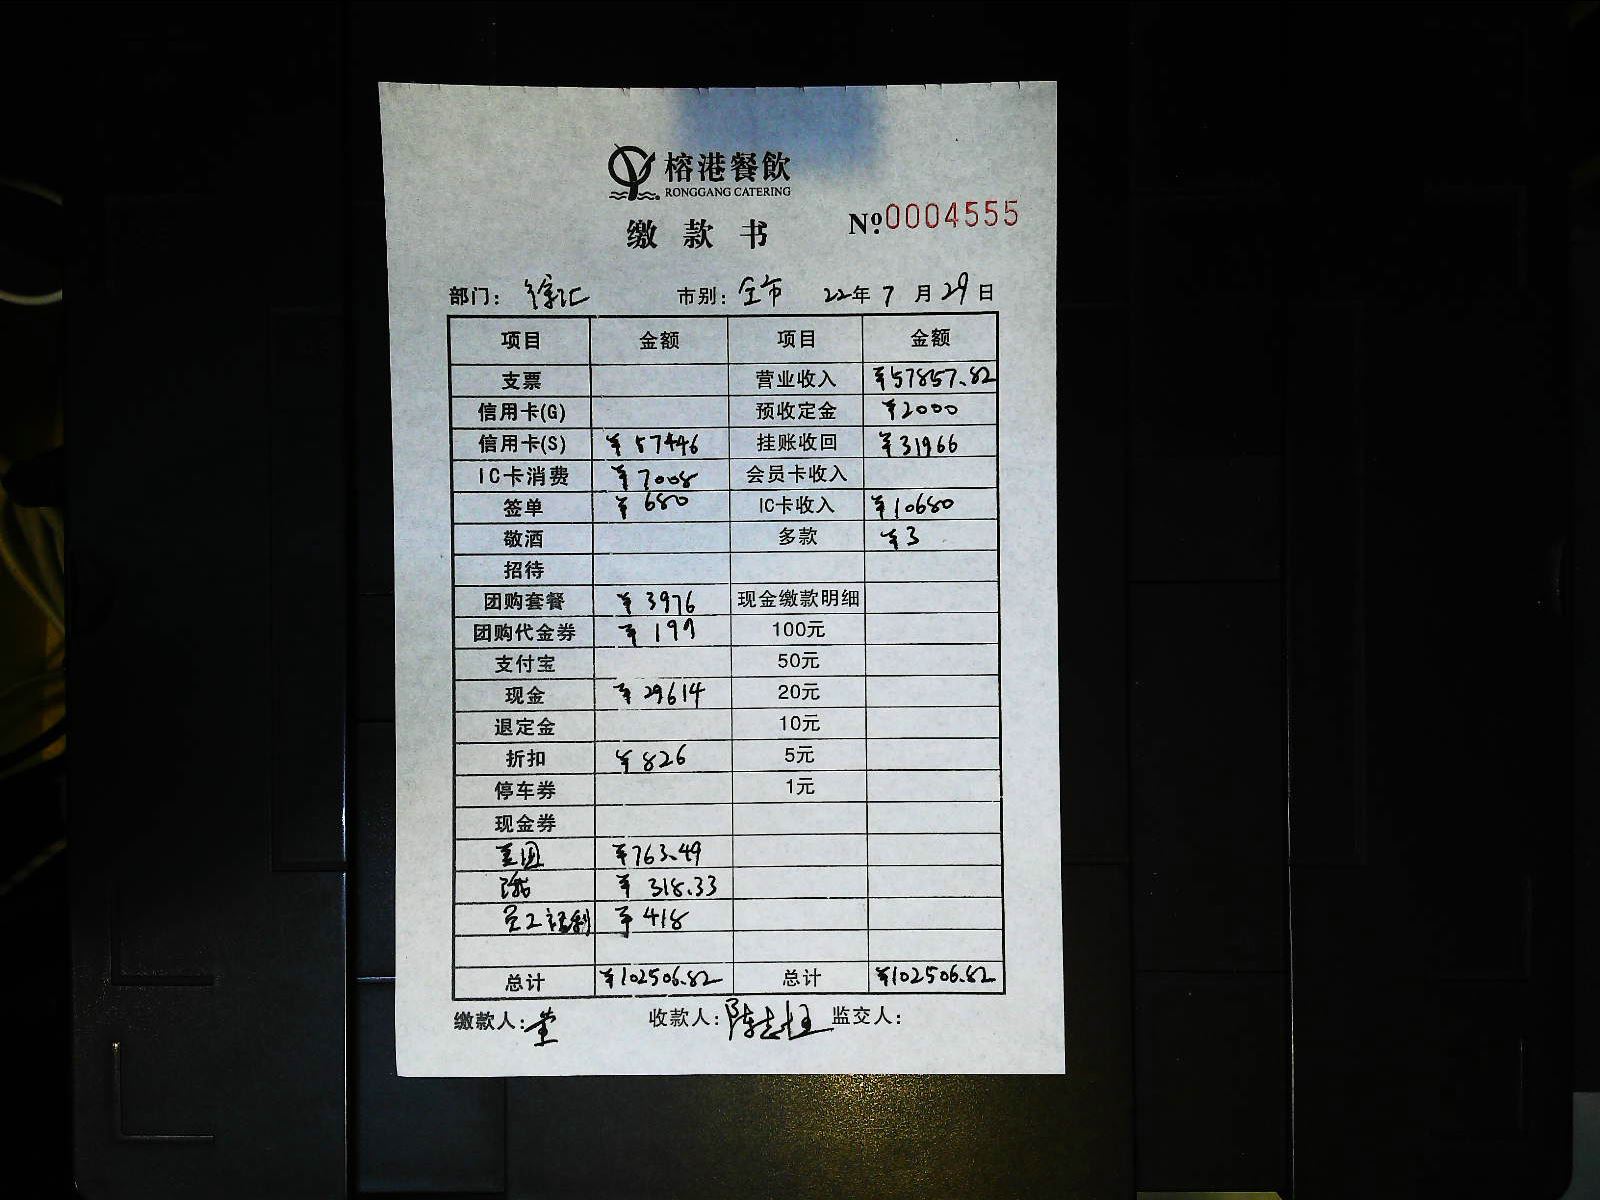 榕港餐飲
RONGGANG CATERING
缴款书 №0004555
部门：徐汇 市别：全市 22年7月29日
项目 金额 项目 金额
支票 营业收入 ¥57857.82
信用卡(G) 预收定金 ¥2000
信用卡(S) ¥57446 挂账收回 ¥31966
IC卡消费 ¥7008 会员卡收入
签单 ¥680 IC卡收入 ¥10680
敬酒 多款 ¥3
招待
团购套餐 ¥3976 现金缴款明细
团购代金券 ¥199 100元
支付宝 50元
现金 ¥29614 20元
退定金 10元
折扣 ¥826 5元
停车券 1元
现金券
美团 ¥763.49
¥318.33
员工福利 ¥418
总计 ¥102506.82 总计 ¥102506.82
缴款人： 收款人： 监交人：